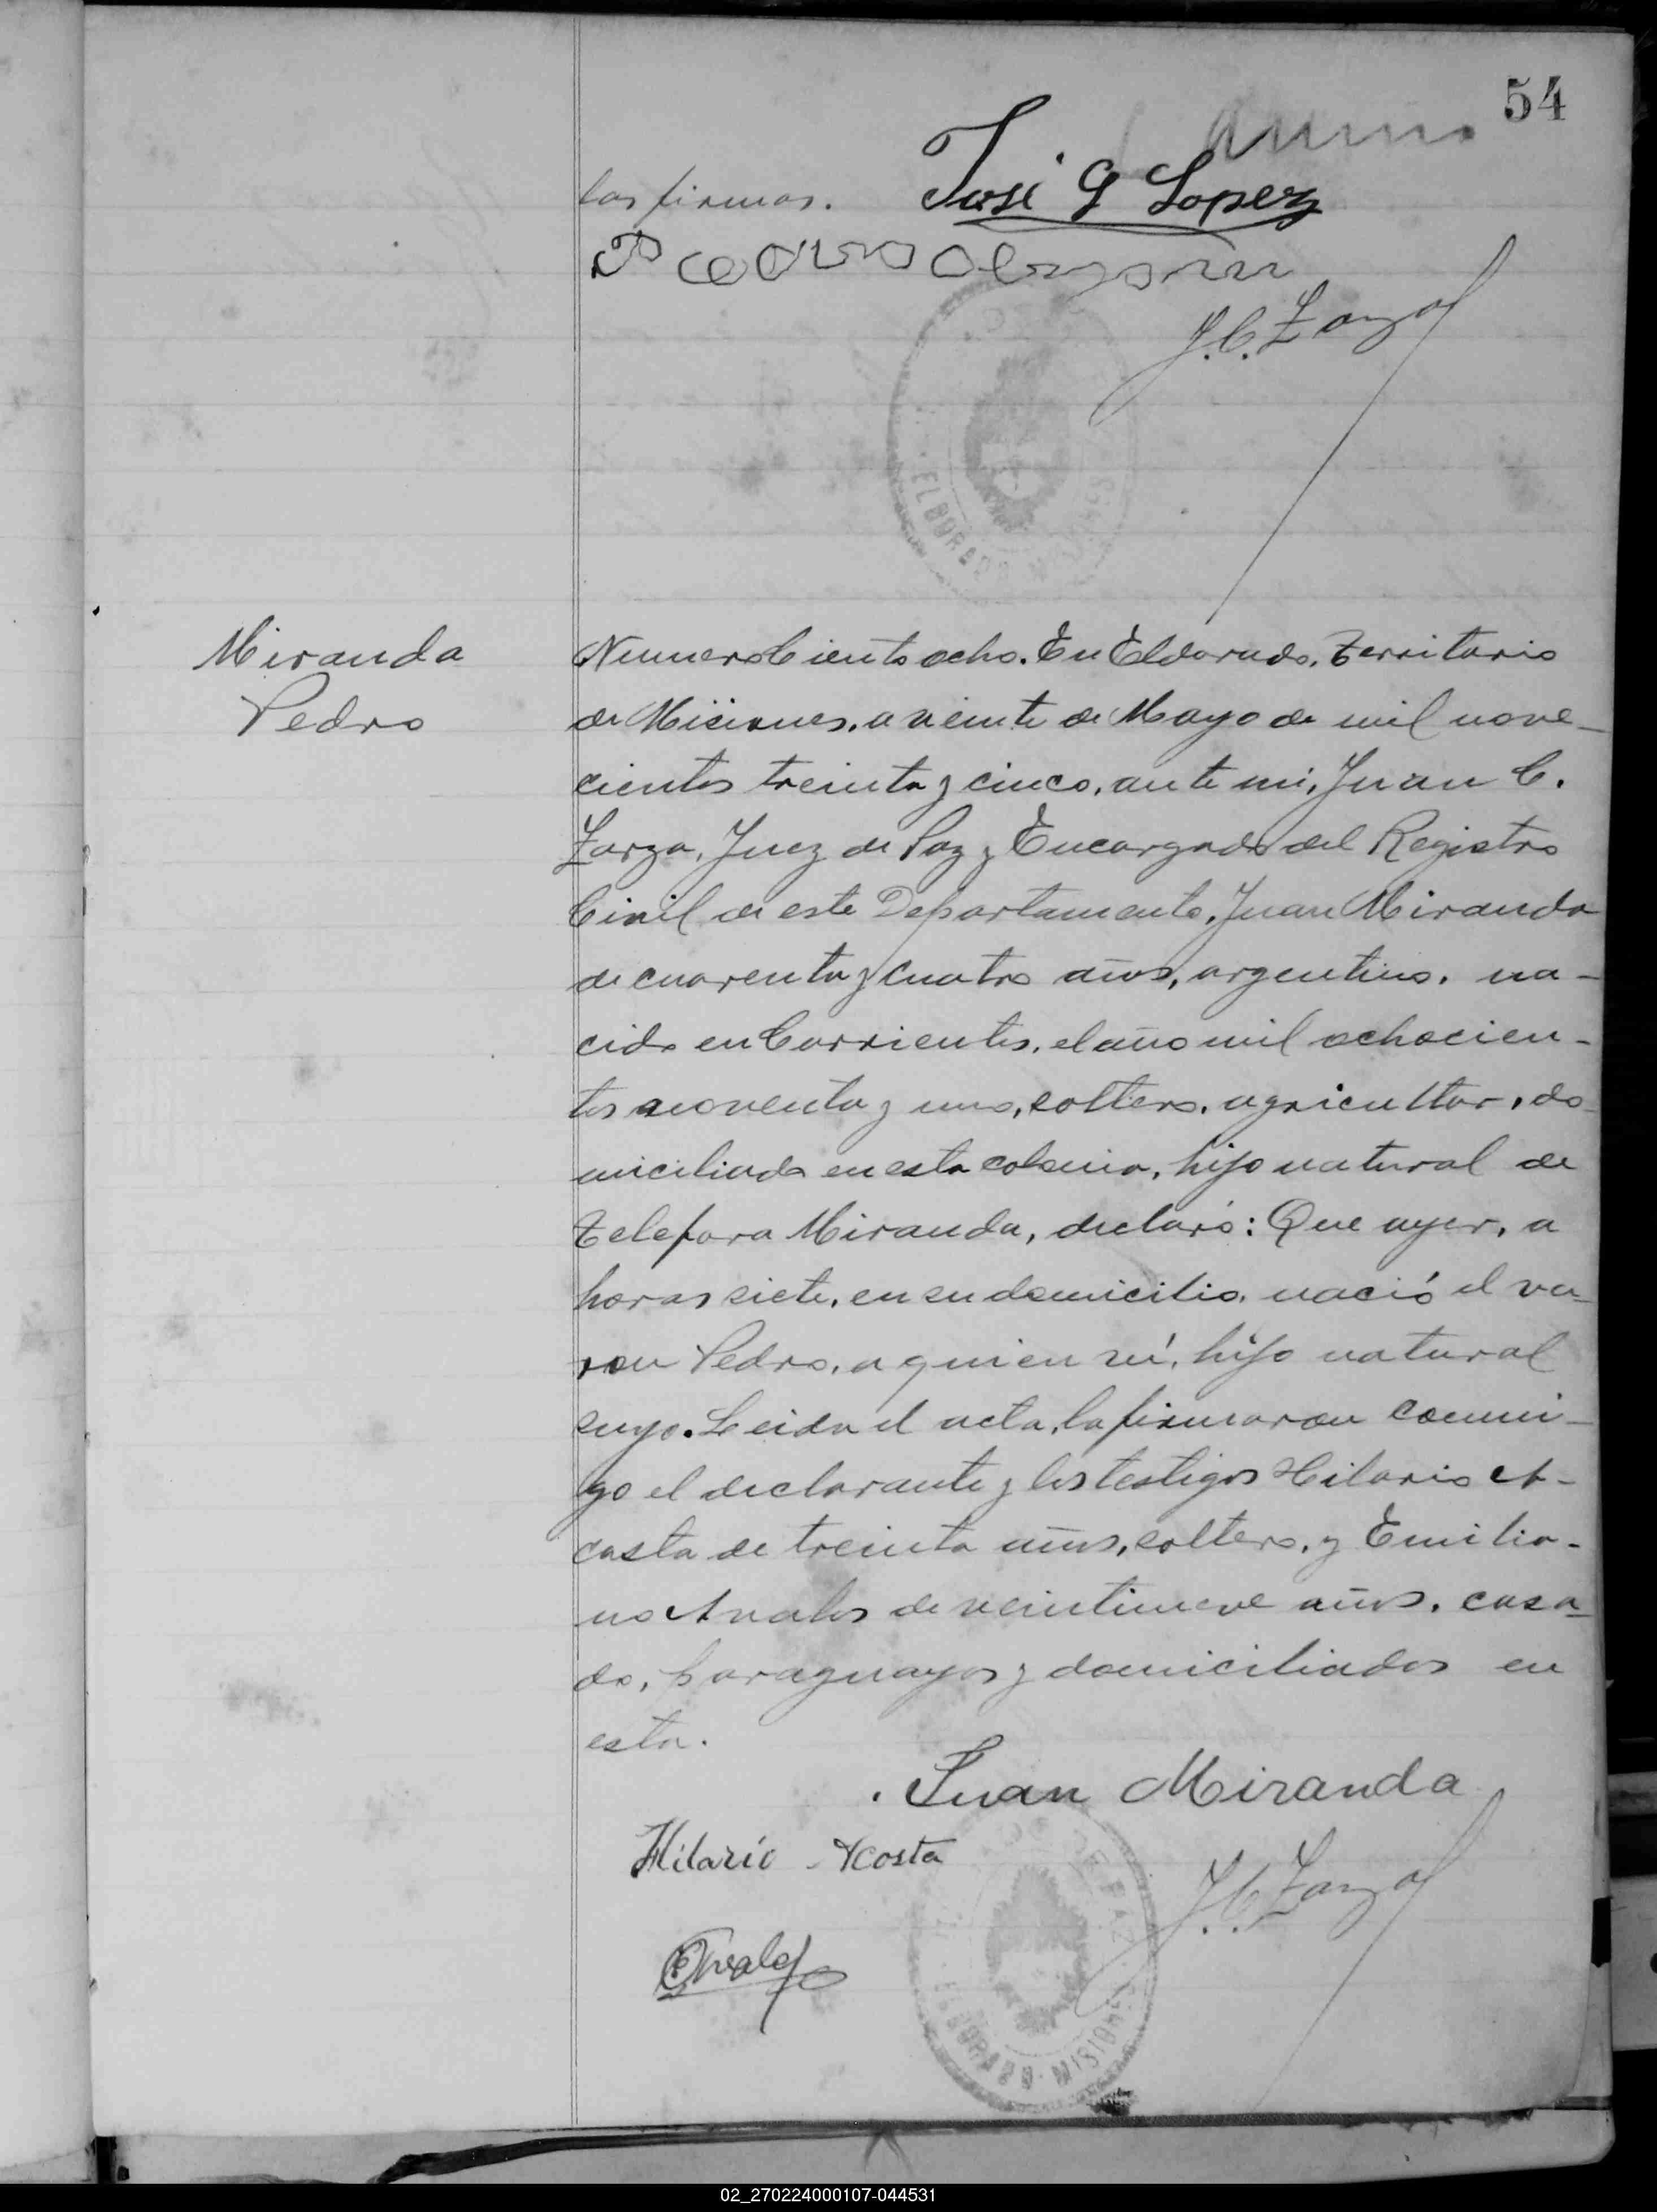 54
las firmas. José G Lopez
J. C. Zarza
ELDORADO MISIONES
Miranda
Pedro
Numero Ciento ocho. En Eldorado, Territorio
de Misiones, a veinte de Mayo de mil nove-
cientos treinta y cinco, ante mi, Juan C.
Zarza, Juez de Paz y Encargado del Registro
Civil de este Departamento, Juan Miranda
de cuarenta y cuatro años, argentino, na-
cido en Corrientes, el año mil ochocien-
tos noventa y uno, soltero, agricultor, do-
miciliado en esta colonia, hijo natural de
Telefora Miranda, declaró: Que ayer, a
horas siete, en su domicilio, nació el va-
ron Pedro, a quien ví, hijo natural
suyo. Leida el acta, la firmaron conmi-
go el declarante y los testigos Hilario A-
costa de treinta años, soltero, y Emilia-
no Avalos de veintinueve años, casa-
do, paraguayos y domiciliados en
esta.
Juan Miranda
Hilario Acosta
J. C. Zarza
DE PAZ
ELDORADO MISIONES
02_270224000107-044531